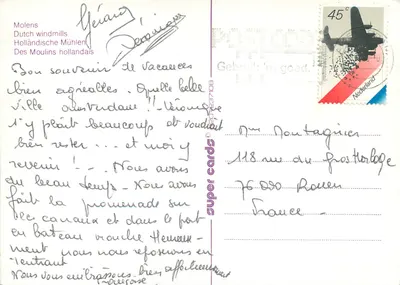 Molens
Dutch windmills
Holländische Mühlen
Des Moulins hollandais
Gérard
Bon souvenir de vacances
bien agréables. Quelle belle
ville Amsterdam!! Véronique
s'y plaît beaucoup et voudrait
bien rester ... et moi y
revenir! -- Nous avons
du beau temps. Nous avons
fait la promenade sur
les canaux et dans le port
en bateau mouche
nous nous reposions en
rentrant
Nous vous embrassons bien affectueusement
super cards
45c
Nederland
Mme Montagnier
118 rue du gros Horloge
76000 Rouen
France